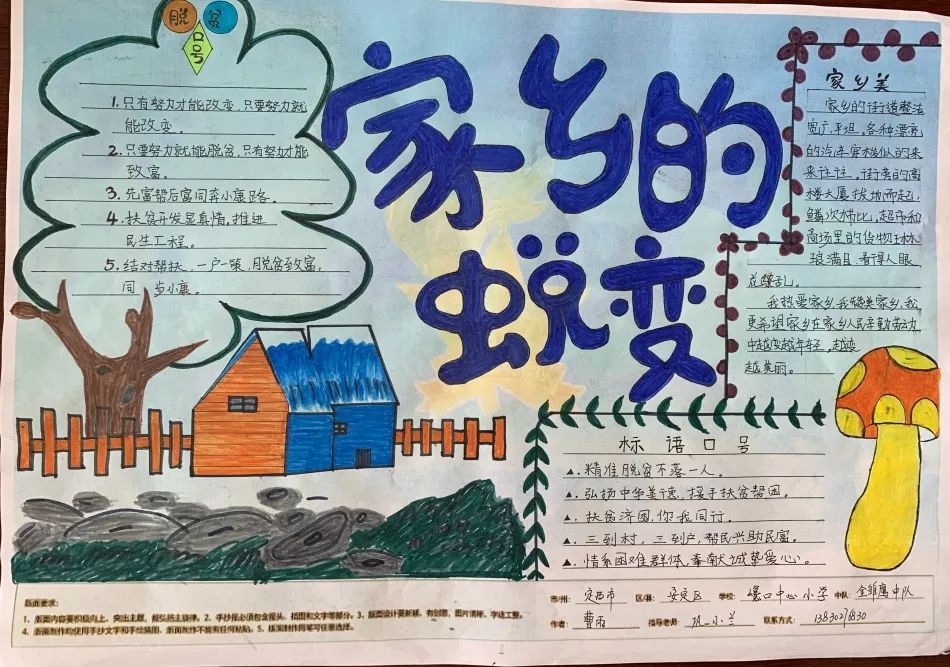 脱贫
口号
1.只有努力才能改变,只要努力就
能改变。
2.只要努力就能脱贫,只有努力才能
致富。
3.先富帮后富同奔小康路。
4.扶贫开发显真情,推进
民生工程。
5.结对帮扶,一户一策,脱贫致富,
同步小康。
家乡的
蜕变
家乡美
家乡的街道整洁
宽广平坦,各种漂亮
的汽车穿梭似的来
来往往,街旁的高
楼大厦拔地而起,
鳞次栉比,超市和
商场里的货物琳
琅满目,看得人眼
花缭乱。
我热爱家乡,我赞美家乡,我
更希望家乡在家乡人民辛勤劳动
中越变越年轻,越变
越美丽。
标语口号
▲.精准脱贫不落一人。
▲.弘扬中华美德,援手扶贫帮困。
▲.扶贫济困,你我同行。
▲.三到村,三到户,帮民兴助民富。
▲.情系困难群体,奉献诚挚爱心。
版面要求:
1、版面内容要积极向上,突出主题,能弘扬主旋律。2、手抄报必须包含报头、插图和文字等部分。3、版面设计要新颖、有创意,图片清晰,字迹工整。
4、版面制作均使用手抄文字和手绘插图,版面制作不能有任何粘贴。5、版面制作用笔可任意选择。
市/州: 定西市 区/县: 安定区 学校: 口中心小学 中队: 金雏鹰中队
作者: 曹雨 指导老师: 小兰 联系方式: